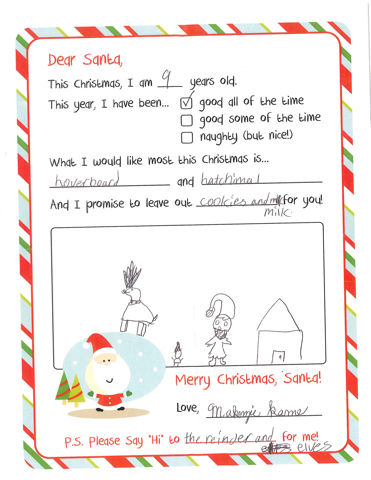 Dear Santa,
This Christmas, I am 9 years old.
This year, I have been... good all of the time
good some of the time
naughty (but nice!)
What I would like most this Christmas is...
hoverboard and hatchimal
And I promise to leave out cookies and for you!
milk
Merry Christmas, Santa!
Love,
P.S. Please Say "Hi" to the reinder and for me!
elves